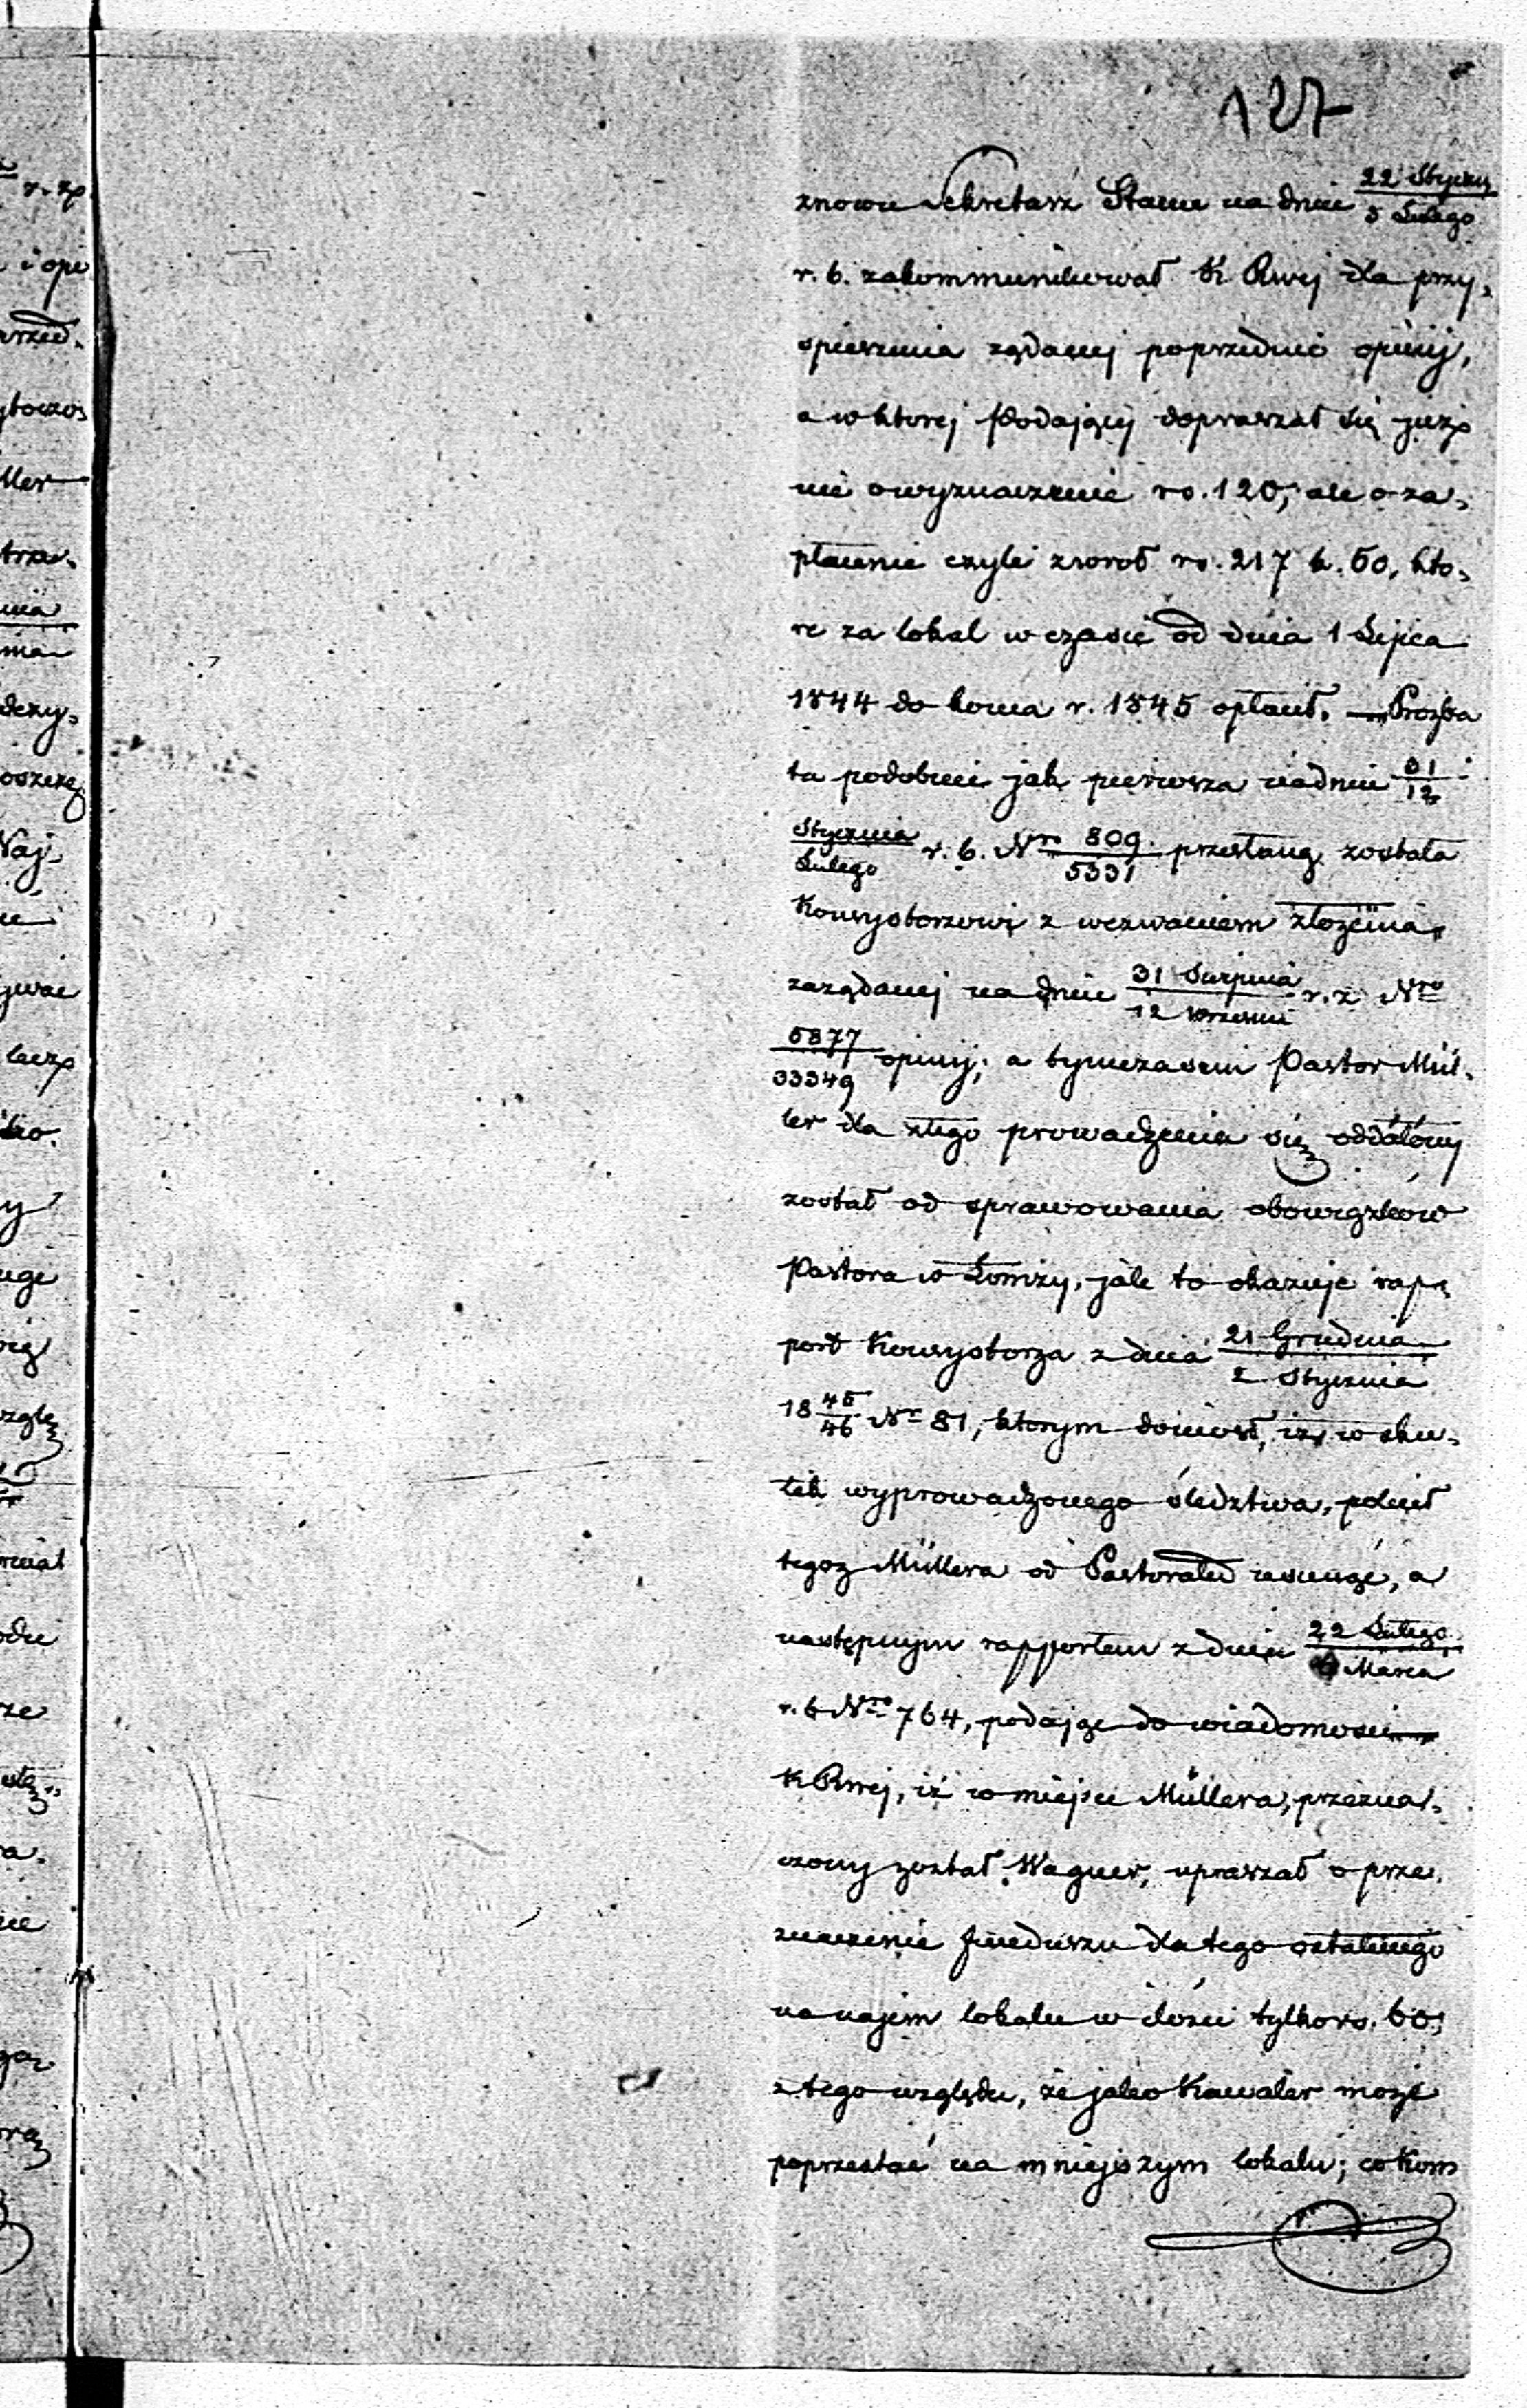 127
znowu Sekretarz Stanu na dniu 22 Styczn / 3 Lutego
r. b. zakommunikował K Rwej dla przy,
spieszenia ządanej poprzednio opinij,
a w ktorej Podający dopraszał się juzp
nie o wyznaczenie rs. 120, ale o za,
płacenie czyli zwrot rs. 217 k. 50, kto,
re za lokal w czasie od dnia 1 Lipca
1844 do konca r. 1845 opłacił. — Prozba
ta podobnie jak pierwsza na dniu 31 / 12
Stycznia / Lutego r. b. Nro 809 / 5331 przesłaną została
Konsystorzowi z wezwaniem złożenia
zarządanej na dniu 31 Sierpnia / 12 Wrzesnia r. z Nro
5877 / 33349 opinij; a tymczasem Pastor Mül,
ler dla złego prowadzenia się oddalony
został od sprawowania obowiązków
Pastora w Łomzy, jak to okazuje rap,
port Konsystorza z dnia 21 Grudnia / 2 Stycznia
18 45/46 Nr 81, ktorym doniosł, iz w sku,
tek wyprowadzonego sledztwa, polecił
tegoz Müllera od Pastoratu usunąć, a
następnym rapportem z dnia 22 Lutego / 6 Marca
r. b Nro 764, podając do wiadomosci
K Rwej, iż w miejsce Müllera, przezna,
czony został Wagner, upraszał o prze,
znaczenie funduszu dla tego ostatniego
na najem lokalu w ilosci tylko rs. 60,
z tego względu, że jako Kawaler może
poprzestać na mniejszym lokalu; co Kom